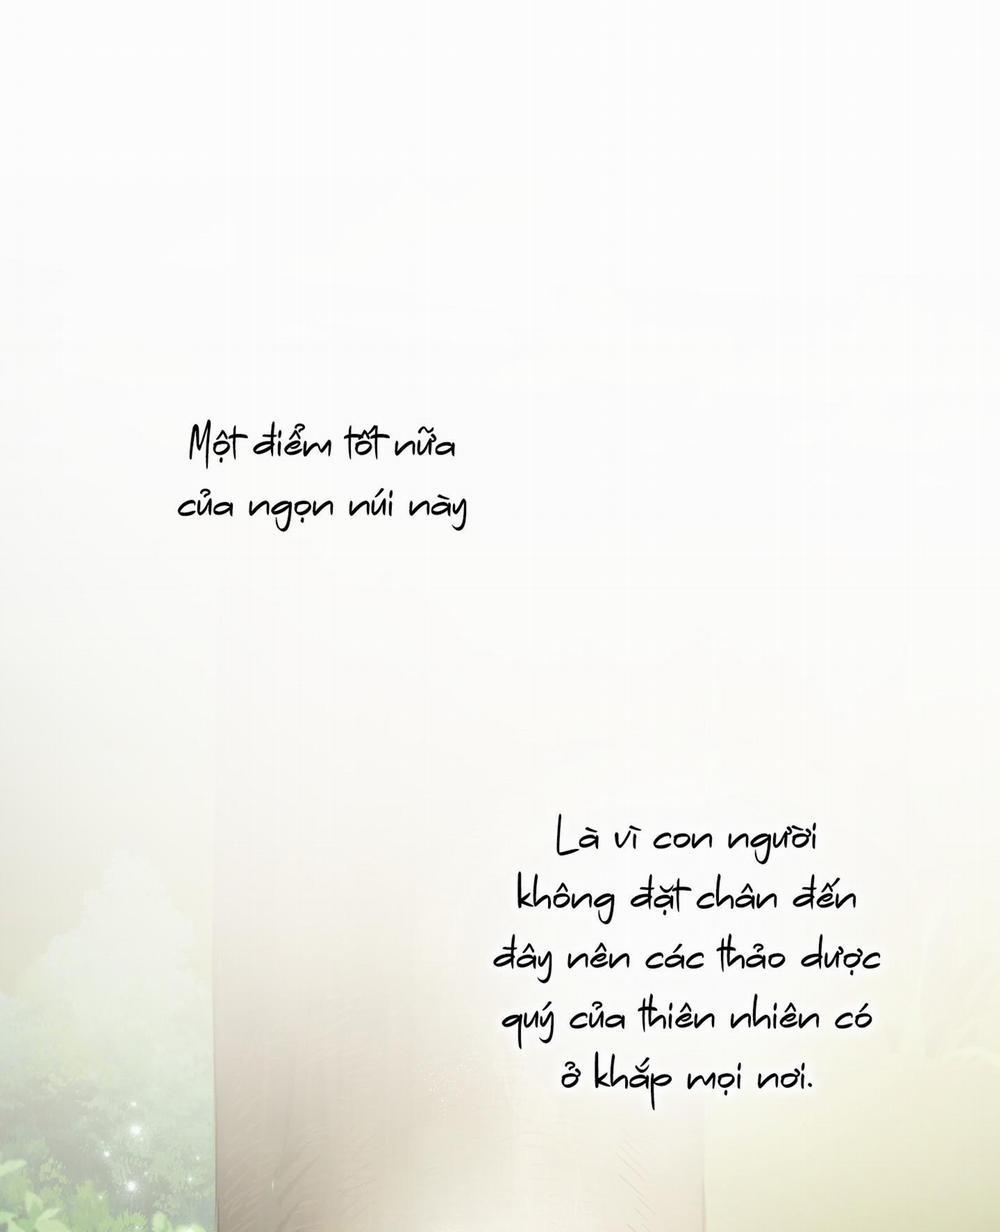 Một điểm tốt nữa
của ngọn núi này
Là vì con người
không đặt chân đến
đây nên các thảo dược
quý của thiên nhiên có
ở khắp mọi nơi.